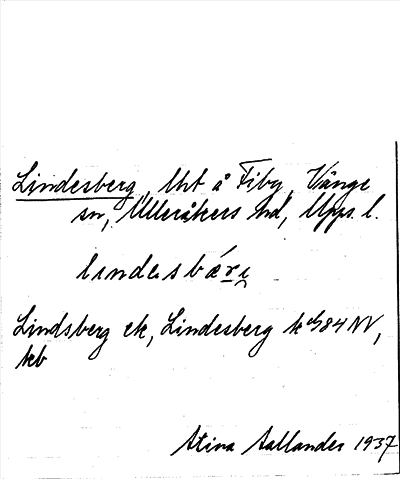 Lindesberg, lht å Fiby, Vänge
sn, Ulleråkers hd, Upps. l.
lindəsbæ̀ri
Lindsberg ek, Lindesberg k 84 NV,
kb
Stina Sallander 1937